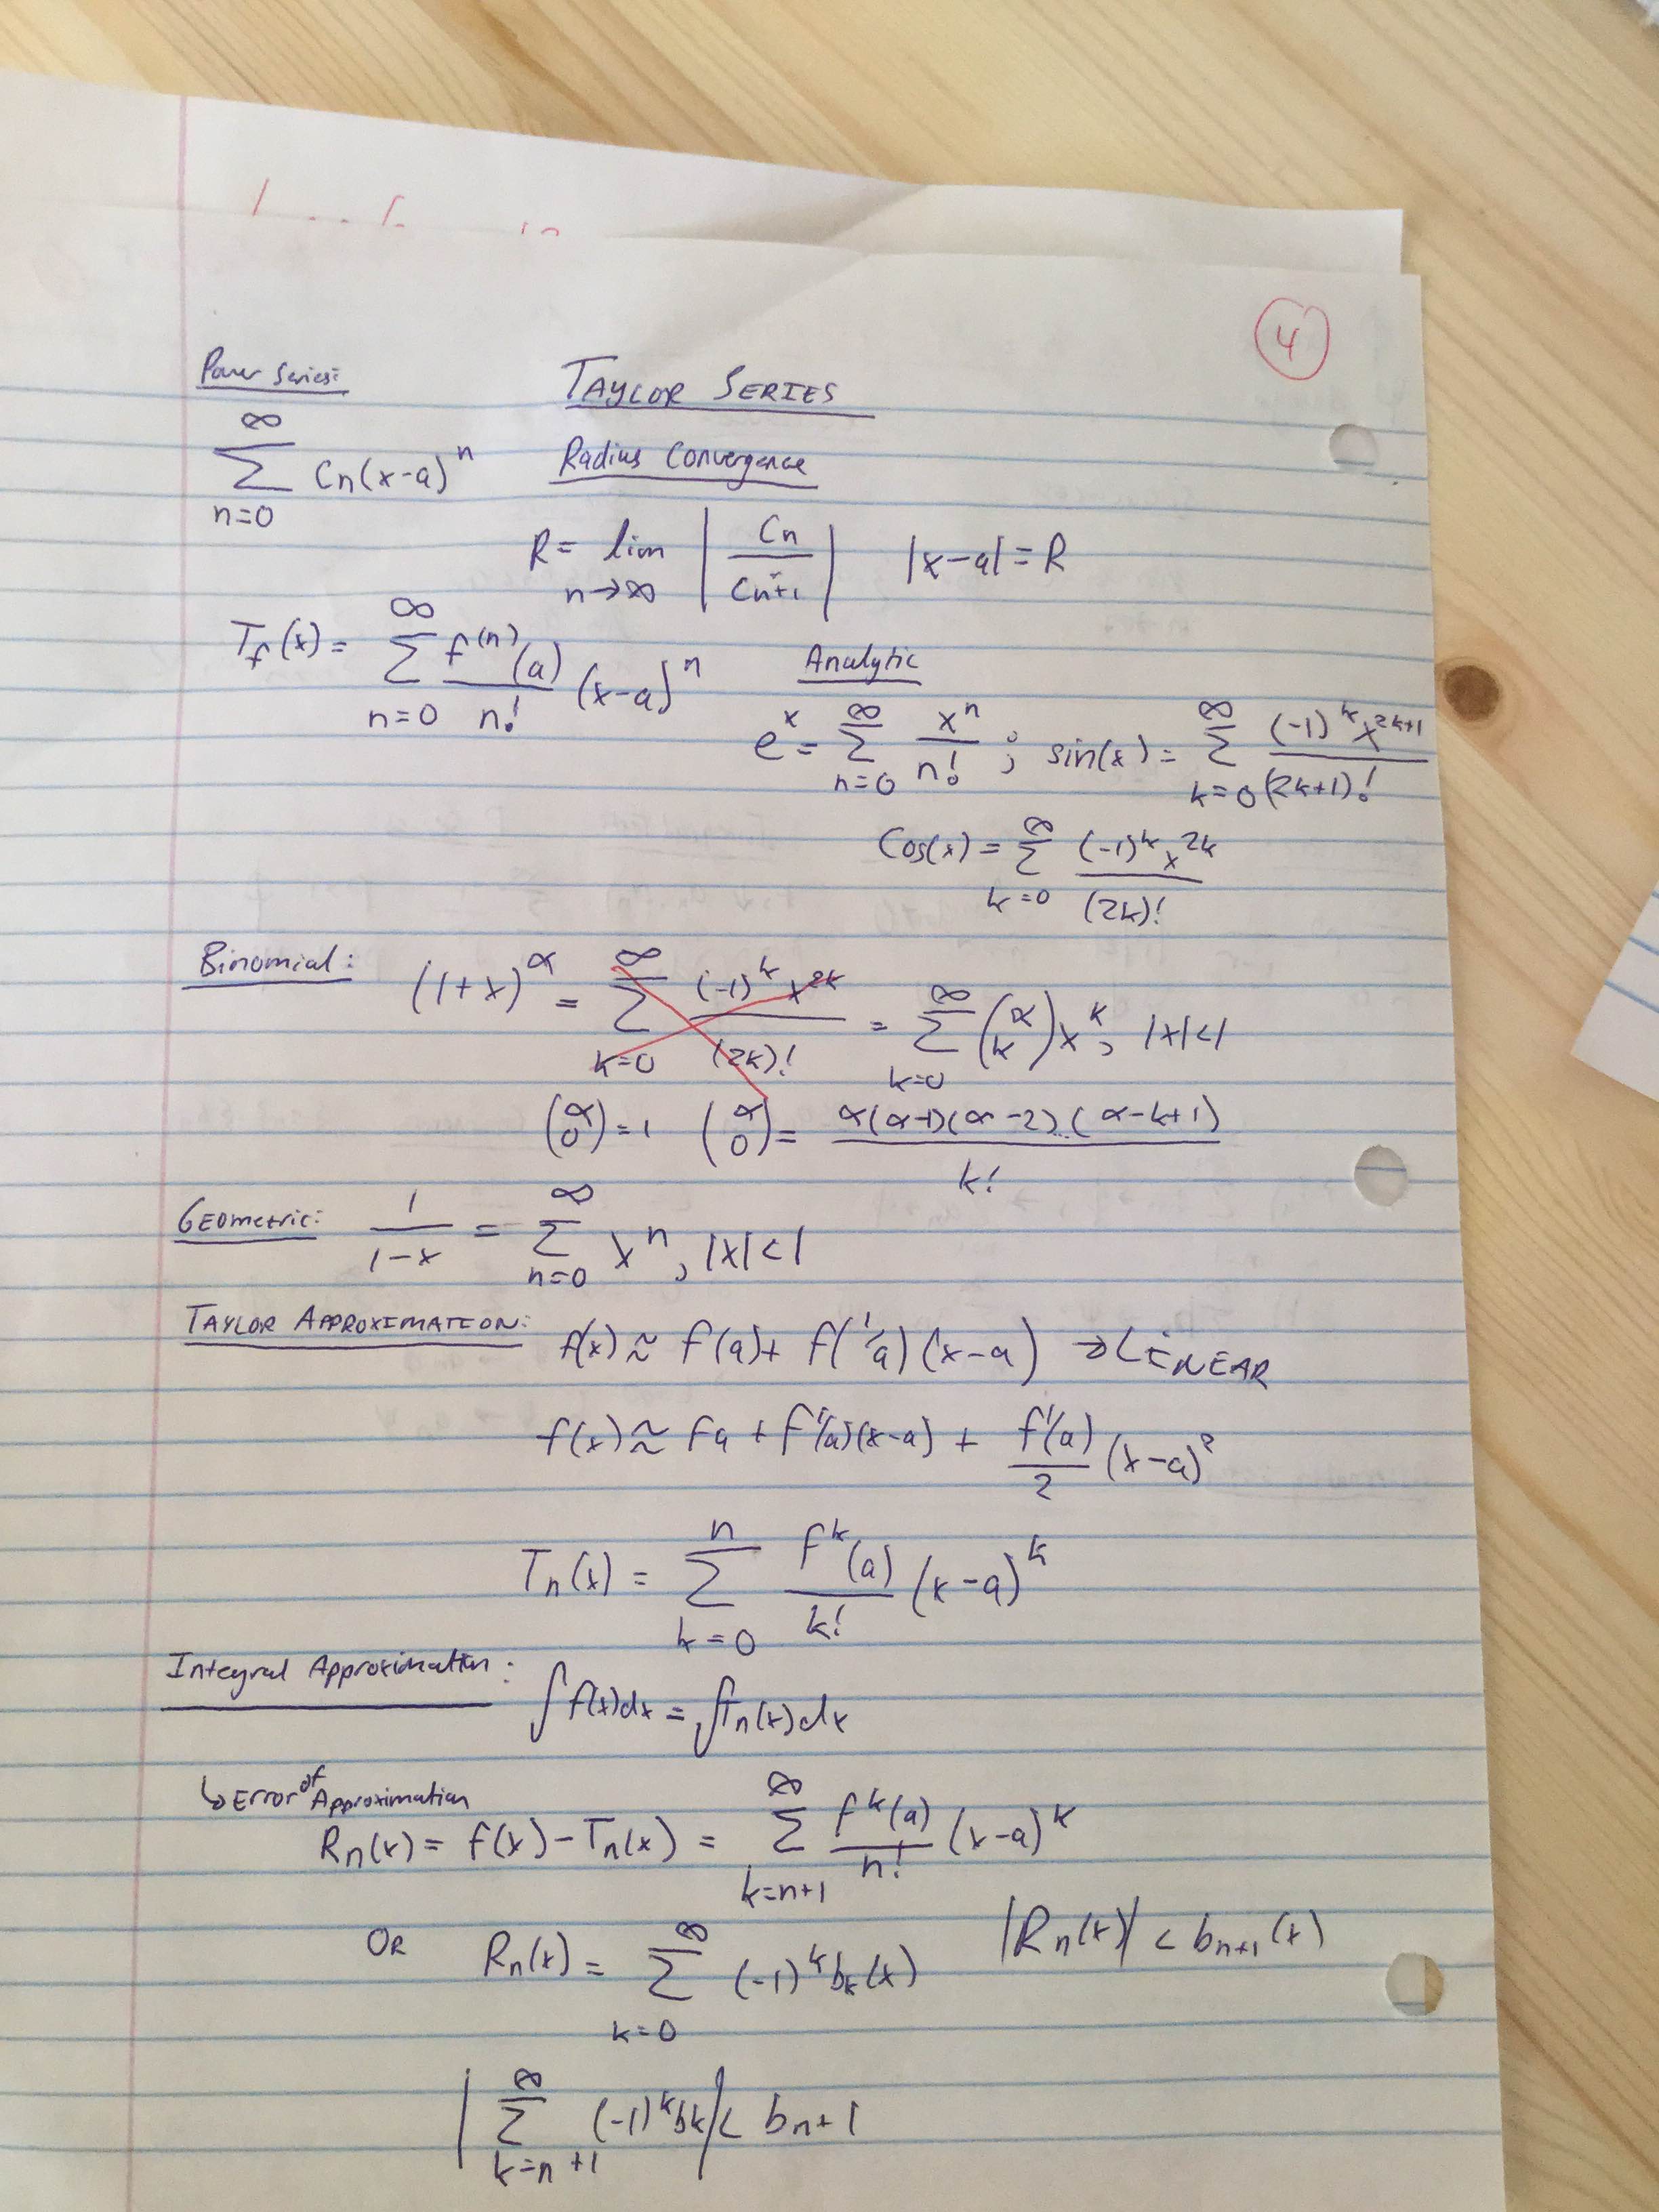 4
Power Series: TAYLOR SERIES
∞
∑ Cn(x-a)^n Radius Convergence
n=0
R = lim n→∞ |Cn / Cn+1| |x-a| = R
T_f(x) = ∑_{n=0}^{∞} f^(n)(a)/n! (x-a)^n
Analytic
e^x = ∑_{n=0}^{∞} x^n/n! ; sin(x) = ∑_{k=0}^{∞} (-1)^k x^{2k+1}/(2k+1)!
Cos(x) = ∑_{k=0}^{∞} (-1)^k x^{2k}/(2k)!
Binomial: (1+x)^α = ∑_{k=0}^{∞} (-1)^k x^{2k}/(2k)! = ∑_{k=0}^{∞} (α k) x^k, |x|<1
(α 0) = 1 (α 0) = α(α-1)(α-2)..(α-k+1)/k!
GEometric: 1/(1-x) = ∑_{n=0}^{∞} x^n, |x|<1
TAYLOR APPROXIMATION: f(x) ≈ f(a) + f'(a)(x-a) → LINEAR
f(x) ≈ fa + f'(a)(x-a) + f'(a)/2 (x-a)^2
Tn(x) = ∑_{k=0}^{n} f^k(a)/k! (x-a)^k
Integral Approximation: ∫f(x)dx = ∫Tn(x)dx
↳ Error of Approximation
Rn(x) = f(x) - Tn(x) = ∑_{k=n+1}^{∞} f^k(a)/n! (x-a)^k
OR Rn(x) = ∑_{k=0}^{∞} (-1)^k bk(x) |Rn(x)| < bn+1(x)
|∑_{k=n+1}^{∞} (-1)^k bk| < bn+1